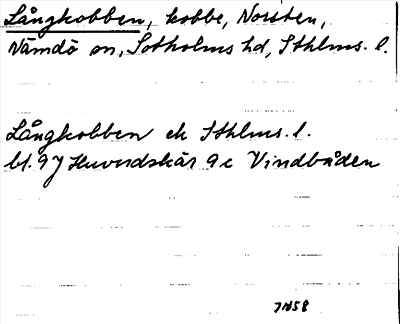 Långkobben, kobbe, Norsten,
Nämdö sn, Sotholms hd, Sthlms. l.
Långkobben ek Sthlms. l.
bl. 97 Huvudskär 9 c Vindbåden
JN58